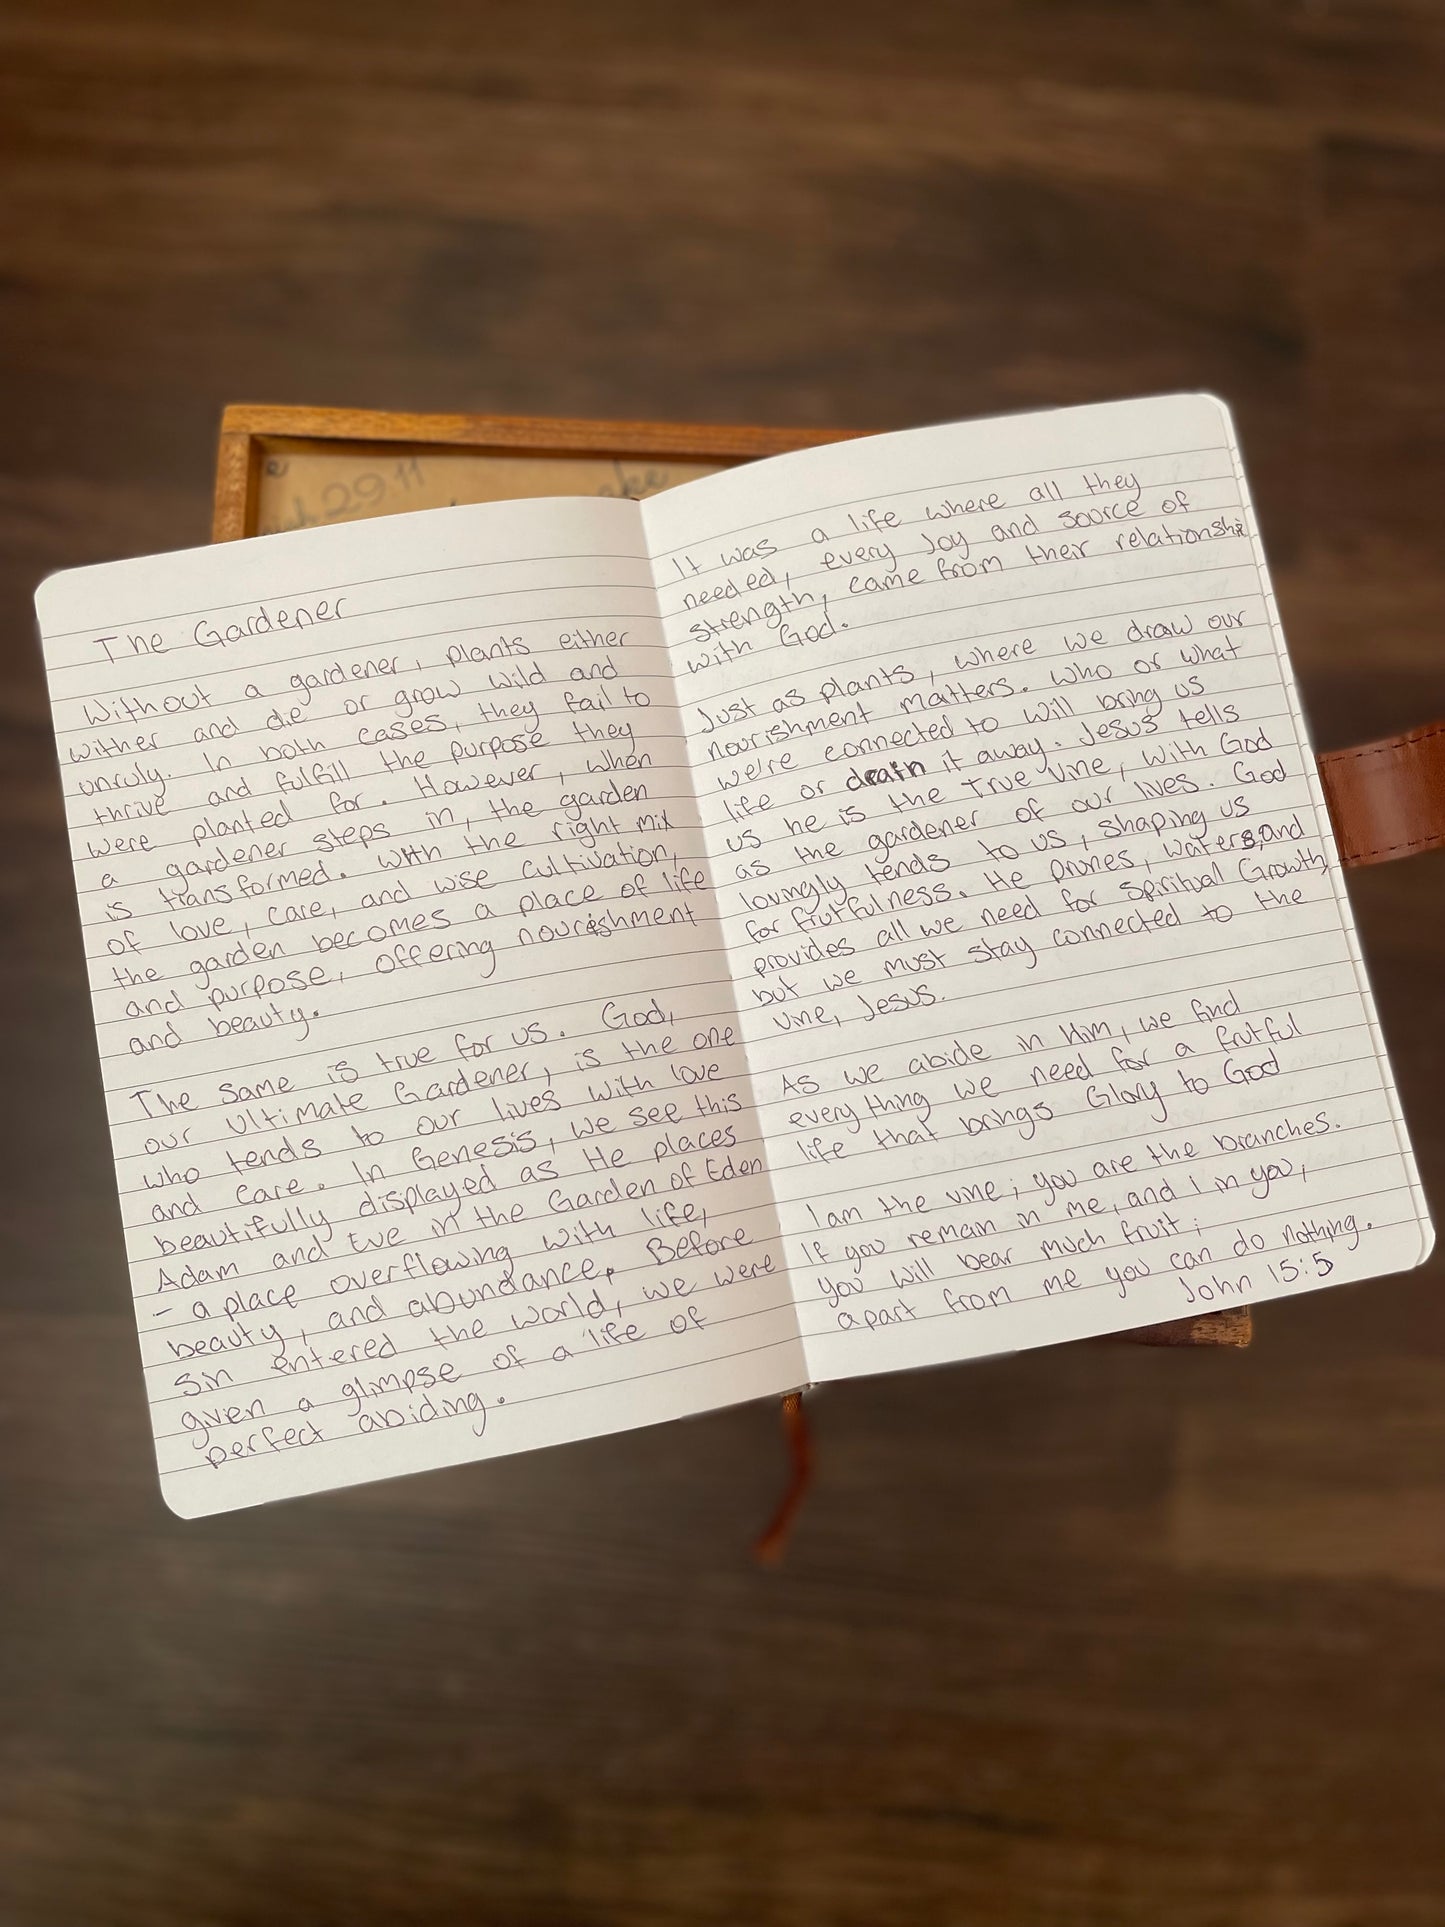 The Gardener
Without a gardener, plants either
wither and die or grow wild and
unruly. In both cases, they fail to
thrive and fulfill the purpose they
were planted for. However, when
a gardener steps in, the garden
is transformed. With the right mix
of love, care, and wise cultivation,
the garden becomes a place of life
and purpose, offering nourishment
and beauty.
The same is true for us. God,
our Ultimate Gardener, is the one
who tends to our lives with love
and care. In Genesis, we see this
beautifully displayed as He places
Adam and Eve in the Garden of Eden
- a place overflowing with life,
beauty, and abundance. Before
Sin entered the world, we were
given a glimpse of a life of
perfect abiding.
It was a life where all they
needed, every Joy and source of
strength, came from their relationshi
with God.
Just as plants, where we draw our
nourishment matters. Who or what
we're connected to will bring us
life or death it away. Jesus tells
us he is the True Vine, with God
as the gardener of our lives. God
lovingly tends to us, shaping us
for fruitfulness. He prunes, waters, and
provides all we need for Spiritual Growth,
but we must stay connected to the
Vine, Jesus.
As we abide in Him, we find
everything we need for a fruitful
life that brings Glory to God
I am the vine; you are the branches.
If you remain in me, and I in you,
you will bear much fruit;
apart from me you can do nothing.
John 15:5
29 11